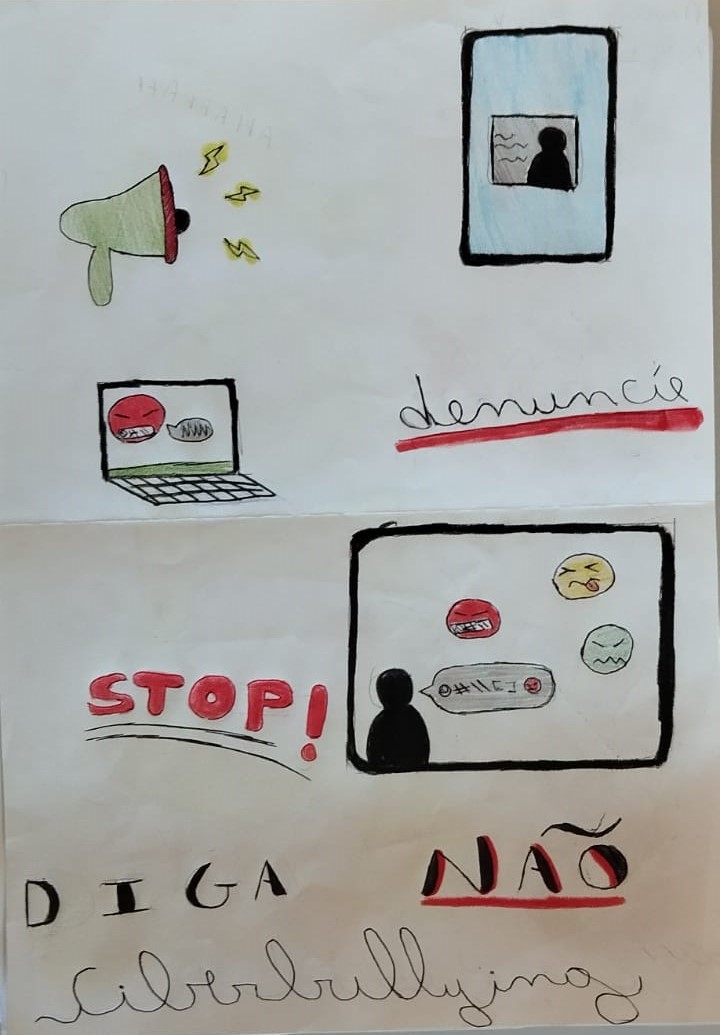 denuncie
@#\\[]
STOP!
DIGA NÃO
Ciberbullying